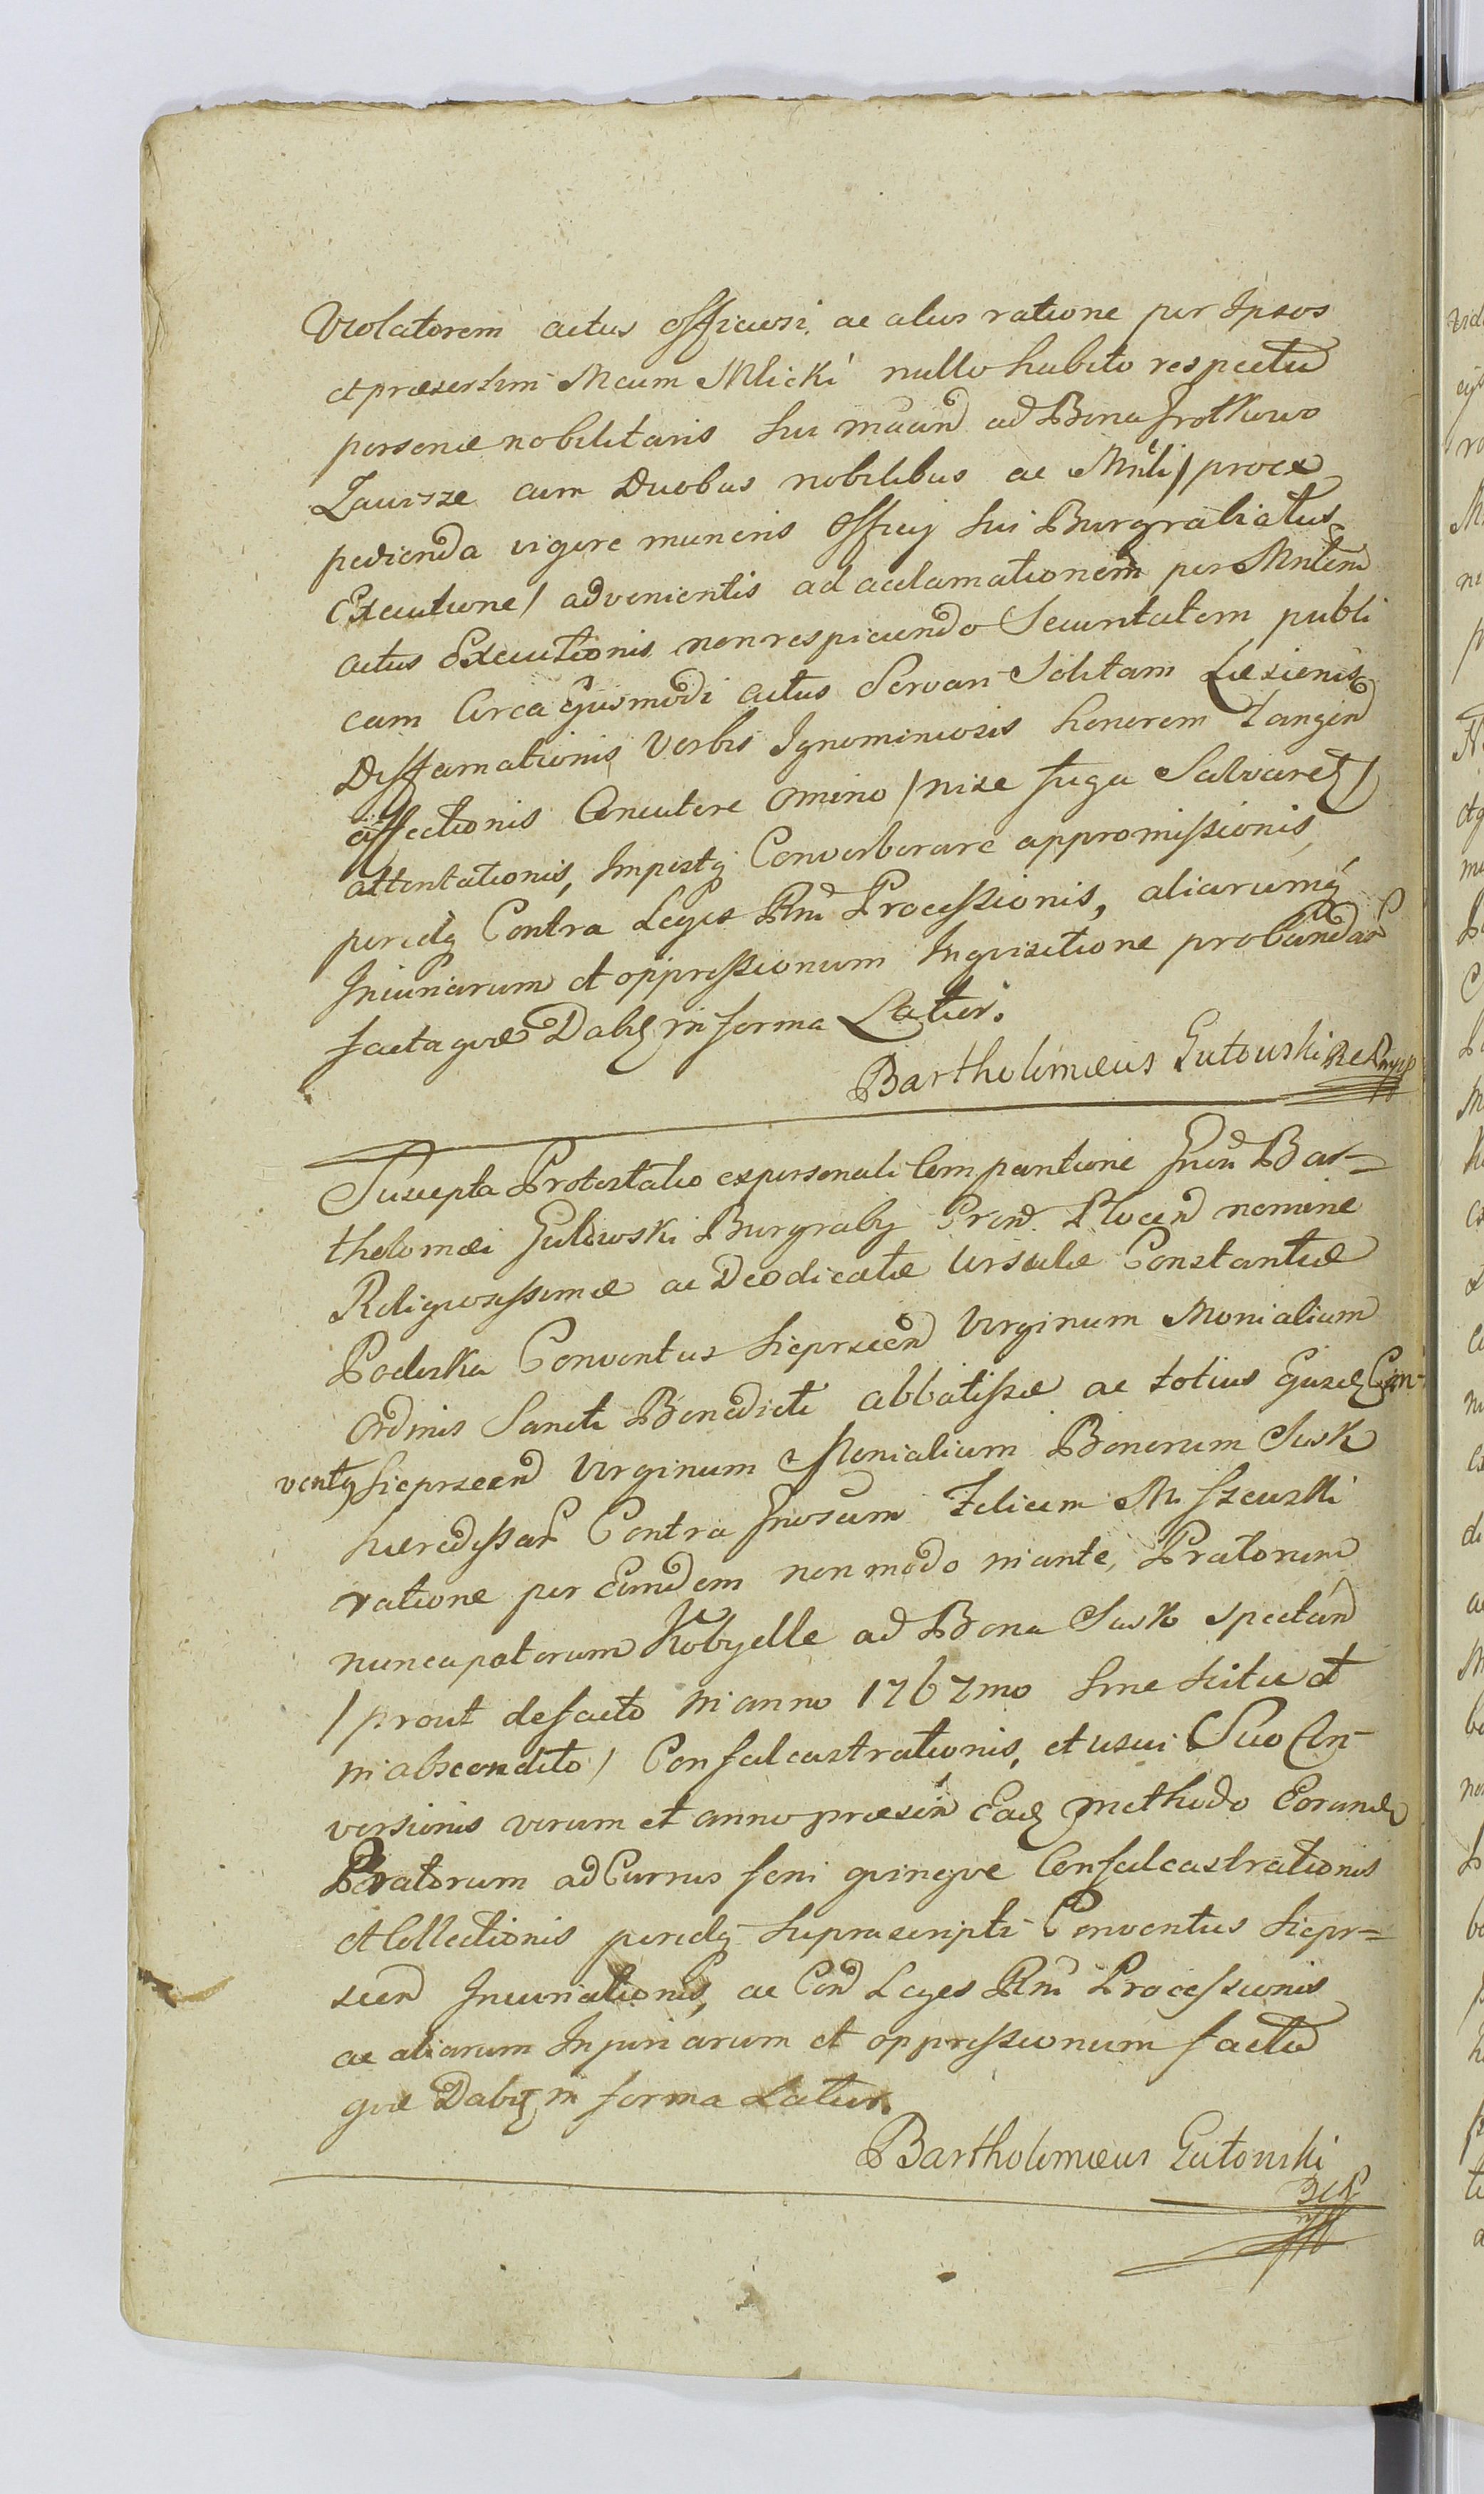 Violatorem actus officiosi ac alios ratione per Ipsos
et praesertim Mcum Mlicki nullo habito respectu
personae nobilitaris sui ad Bona Srokowo
Zawisze cum Duobus nobilibus ac Mnli / pro ex
pedienda vigore muneris Officij sui Burgrabiatus
Executione / advenientis ad acclamationem per Mnlem
actus Executionis non respiciendo Securitatem publi
cam Circa Ejusmodi actus Servari Solitam Laesionis
Diffamationis Verbis Ignominiosis honorem Tangen
affectionis Concutere omino / nise fuga Salvaret /
attentationis, Impostq Converberare appromissionis,
peridq Contra Leges Rni Processionis, aliarumq
Iniuriarum et oppressionum Inquisitione probandar
facta quae Dabit in forma Latiori.
Bartholomaeus Gutowski
Suscepta Protestatio ex personali Comparitione Gnsi Bar=
tholomaei Gutowski Burgraby Cren. Plocen nomine
Religiosissimae ac Deodicatae Ursulae Constantiae
Podoska Conventus Sieprscen Virginum Monialium
Ordinis Sancti Benedicti abbatissae ac totius Ejusd Con-
ventq Sieprscen Virginum Monialium Bonorum Susk
haeredissar Contra Gnosum Felicem Mszewski
ratione per Eundem non modo in ante, Pratorum
nuncupatorum Kobyelle ad Bona Susk spectan
/ prout de facto in anno 1767mo sine scitu et
in abscondito / Confalcastrationis, et usui Suo Con-
versionis verum et anno praesen Ead methodo Eorund
Pratorum ad Currus feni quinque Confalcastrationis
et Collectionis peridq suprascripti Conventus Siepr=
scen Iniuriationis, ac Con Leges Rni Processionis
ac aliarum Injuriarum et oppressionum facta
quae Dabit in forma Latiori.
Bartholomaeus Gutowski